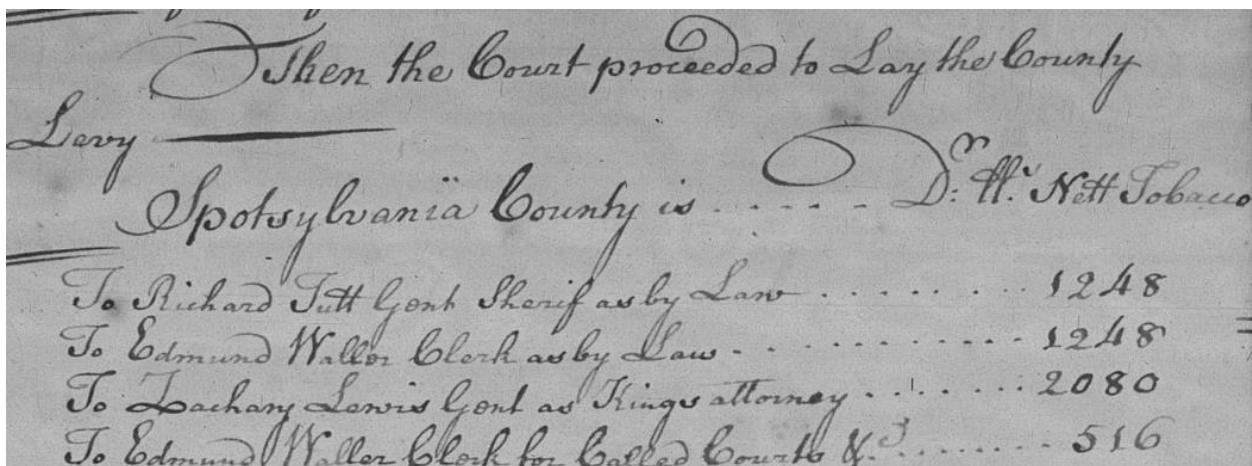 Then the Court proceeded to Lay the County
Levy
Spotsylvania County is . . . . . Dr. lb. Nett Tobacco
To Richard Tutt Gent Sherif as by Law . . . . . . . . 1248
To Edmund Waller Clerk as by Law . . . . . . . . . . . . 1248
To Zachary Lewis Gent as Kings attorney . . . . . . . . 2080
To Edmund Waller Clerk for Called Courts &c. . . . . . . . 516